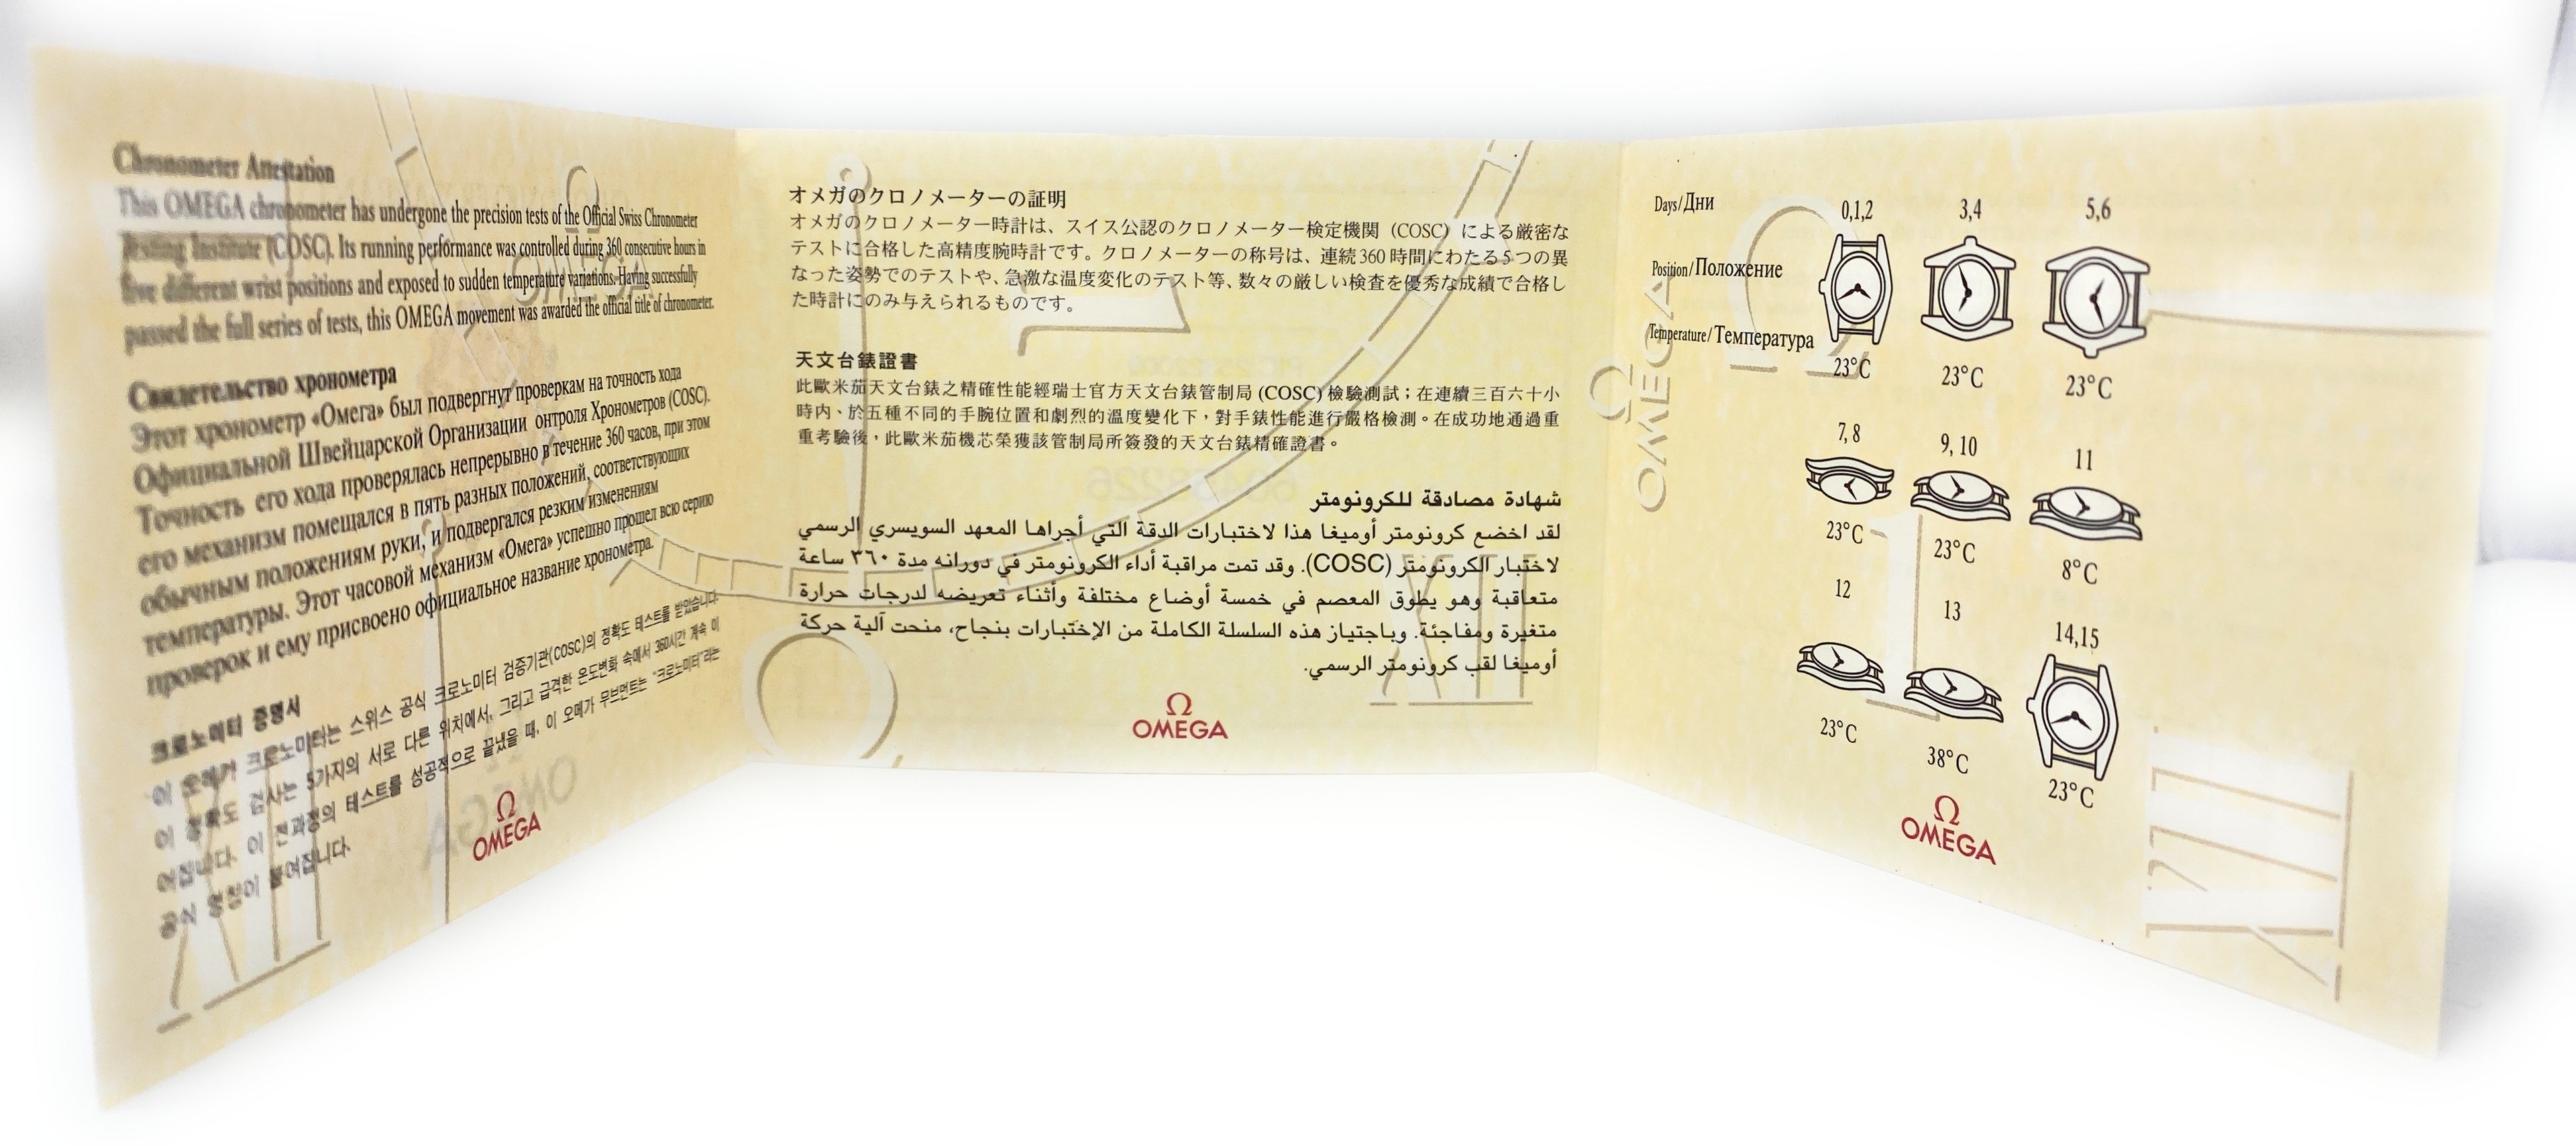 Chronometer Attestation
This OMEGA chronometer has undergone the precision tests of the Official Swiss Chronometer
Testing Institute (COSC). Its running performance was controlled during 360 consecutive hours in
five different wrist positions and exposed to sudden temperature variations. Having successfully
passed the full series of tests, this OMEGA movement was awarded the official title of chronometer.
Свидетельство хронометра
Этот хронометр «Омега» был подвергнут проверкам на точность хода
Официальной Швейцарской Организации онтроля Хронометров (COSC).
Точность его хода проверялась непрерывно в течение 360 часов, при этом
его механизм помещался в пять разных положений, соответствующих
обычным положениям руки, и подвергался резким изменениям
температуры. Этот часовой механизм «Омега» успешно прошел всю серию
проверок и ему присвоено официальное название хронометра.
크로노미터 증명서
이 오메가 크로노미터는 스위스 공식 크로노미터 검증기관(COSC)의 정확도 테스트를 받았습니다.
이 정확도 검사는 5가지의 서로 다른 위치에서, 그리고 급격한 온도변화 속에서 360시간 계속 이
어집니다. 이 전과정의 테스트를 성공적으로 끝냈을 때, 이 오메가 무브먼트는 "크로노미터"라는
공식 명칭이 붙여집니다.
Ω
OMEGA
オメガのクロノメーターの証明
オメガのクロノメーター時計は、スイス公認のクロノメーター検定機関 (COSC) による厳密な
テストに合格した高精度腕時計です。クロノメーターの称号は、連続360時間にわたる5つの異
なった姿勢でのテストや、急激な温度変化のテスト等、数々の厳しい検査を優秀な成績で合格し
た時計にのみ与えられるものです。
天文台錶證書
此歐米茄天文台錶之精確性能經瑞士官方天文台錶管制局 (COSC) 檢驗測試；在連續三百六十小
時內、於五種不同的手腕位置和劇烈的溫度變化下，對手錶性能進行嚴格檢測。在成功地通過重
重考驗後，此歐米茄機芯榮獲該管制局所簽發的天文台錶精確證書。
شهادة مصادقة للكرونومتر
لقد اخضع كرونومتر أوميغا هذا لاختبارات الدقة التي أجراها المعهد السويسري الرسمي
لاختبار الكرونومتر (COSC). وقد تمت مراقبة أداء الكرونومتر في دورانه مدة ٣٦٠ ساعة
متعاقبة وهو يطوق المعصم في خمسة أوضاع مختلفة وأثناء تعريضه لدرجات حرارة
متغيرة ومفاجئة. وباجتياز هذه السلسلة الكاملة من الإختبارات بنجاح، منحت آلية حركة
أوميغا لقب كرونومتر الرسمي.
Ω
OMEGA
Ω OMEGA
Days/Дни
0,1,2 3,4 5,6
Position/Положение
Temperature/Температура
23°C 23°C 23°C
7, 8 9, 10 11
23°C 23°C 8°C
12 13 14,15
23°C 38°C 23°C
Ω
OMEGA
XII